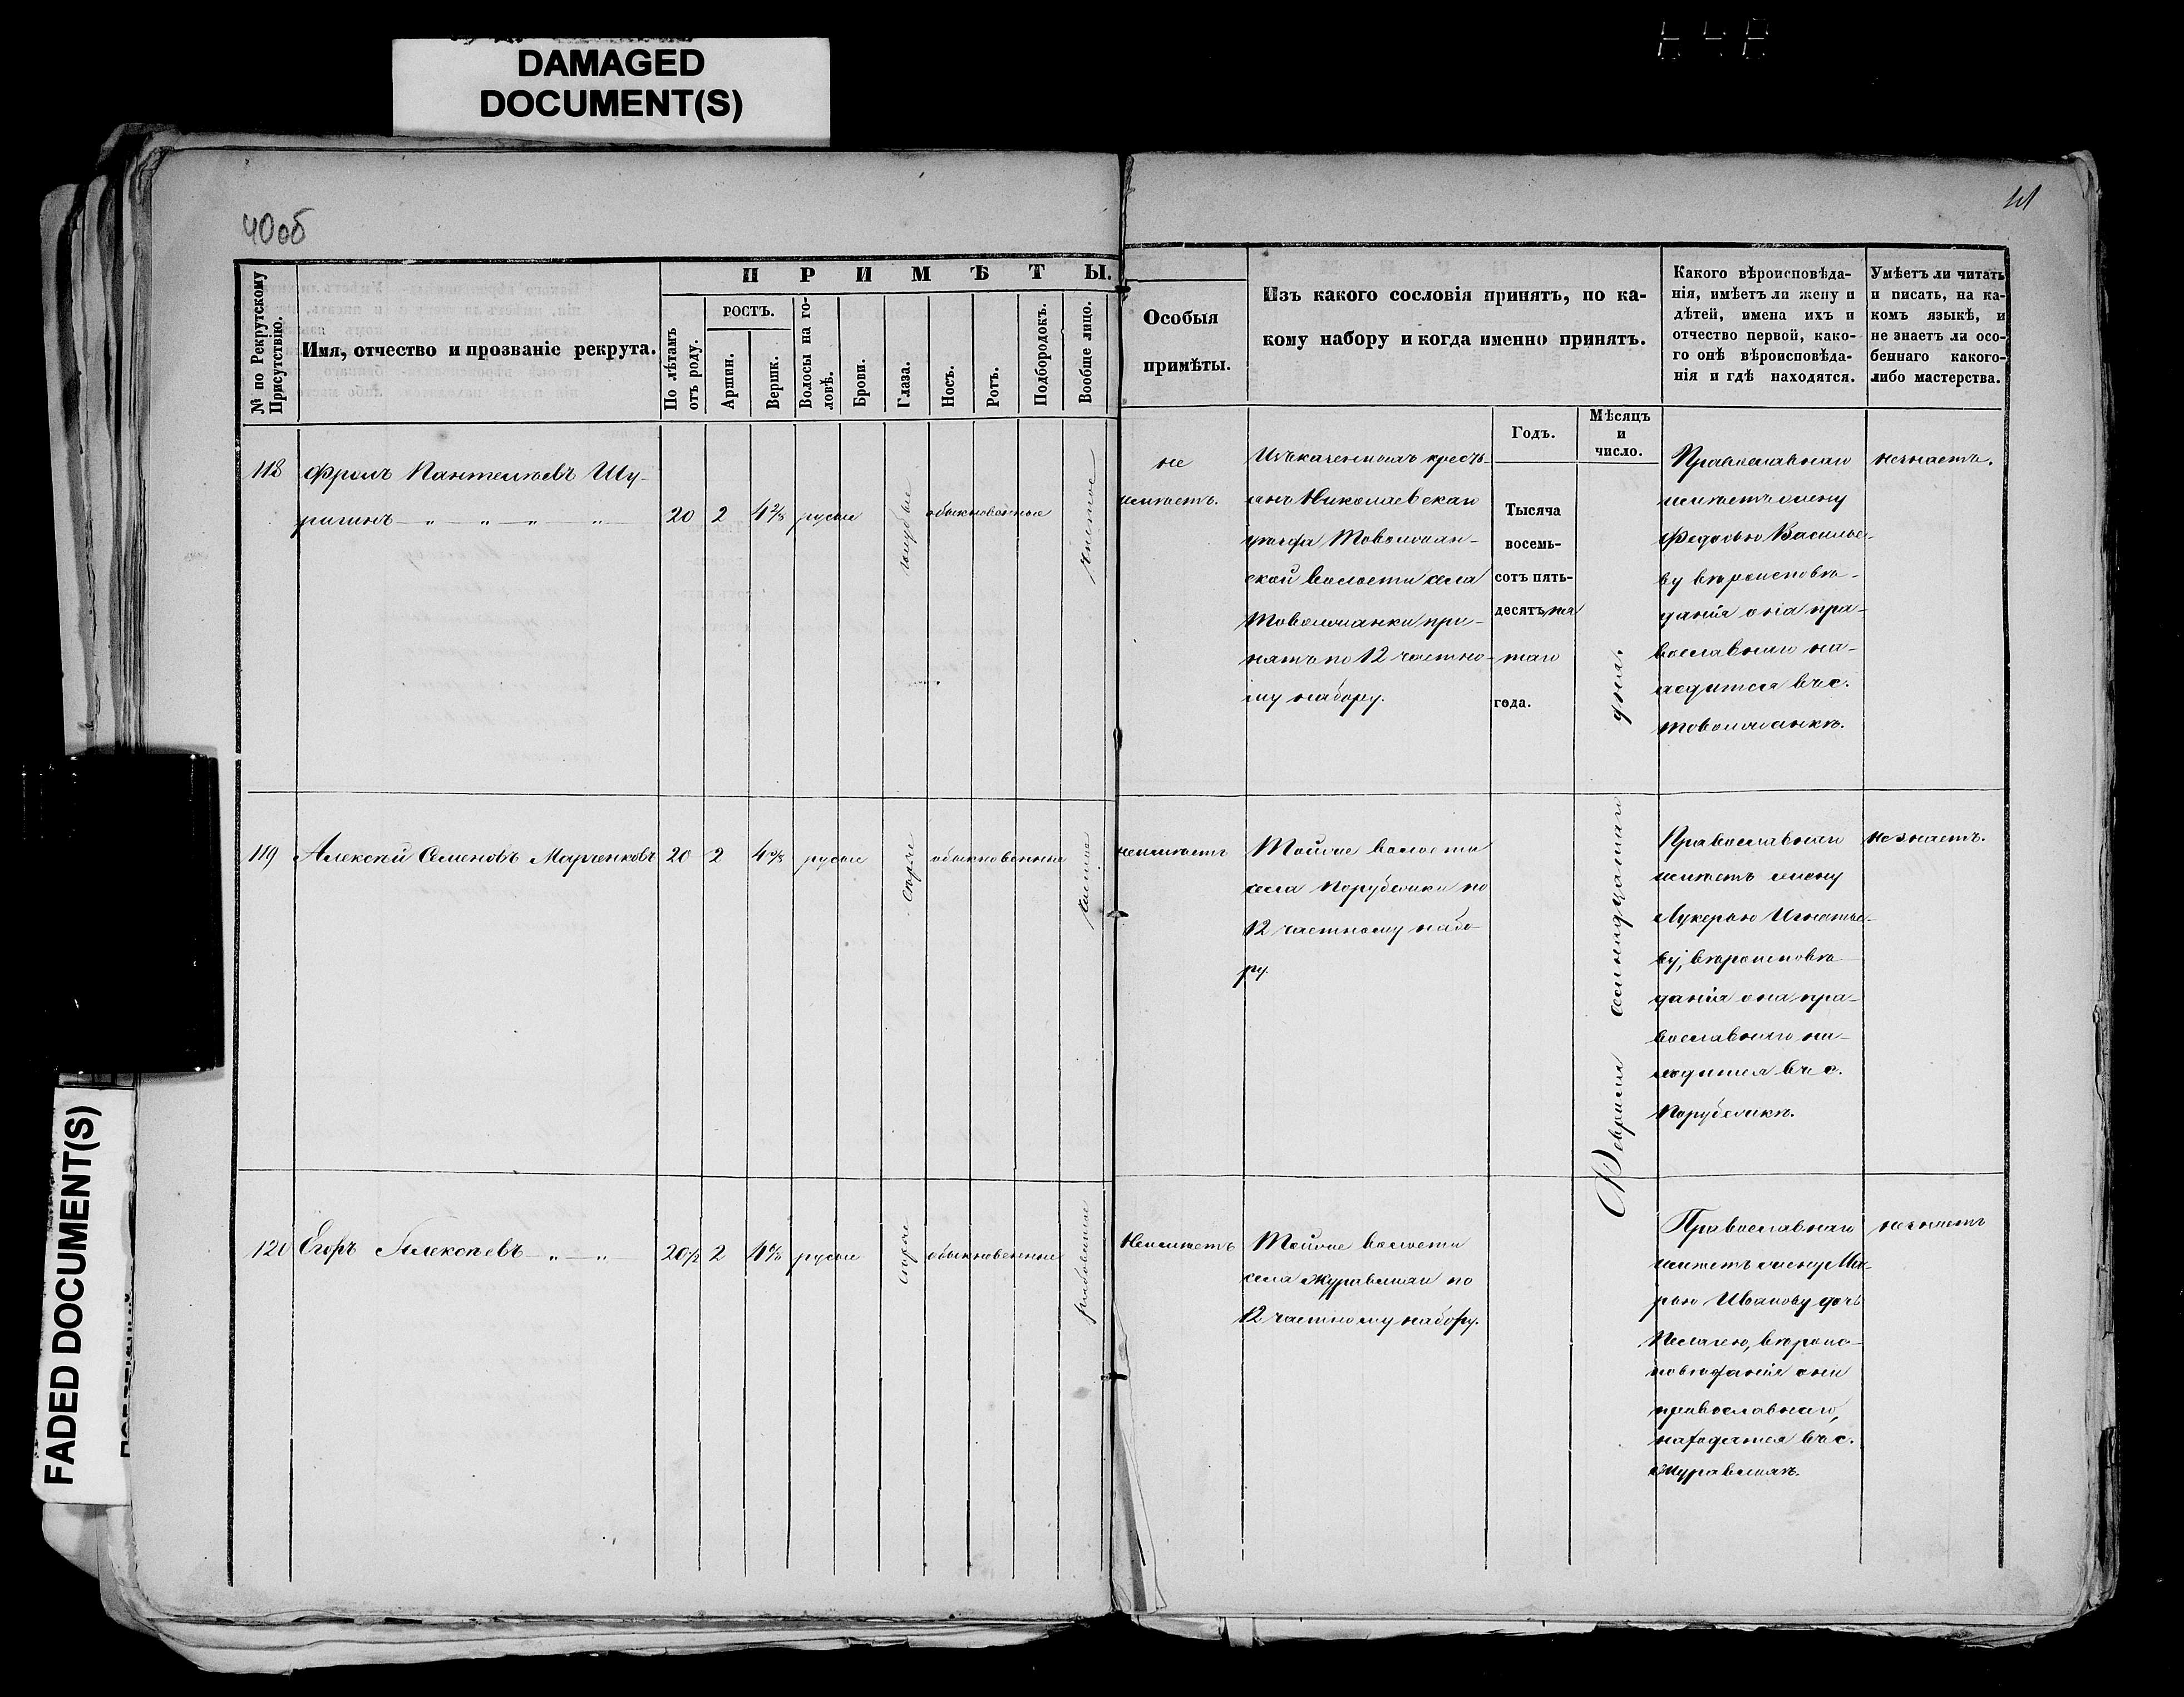 DAMAGED
DOCUMENT(S)
FADED DOCUMENT(S)
40об
41
№ по Рекрутскому
Присутствію.
Имя, отчество и прозваніе рекрута.
ПРИМѢТЫ.
По лѣтамъ
отъ роду.
РОСТЪ.
Аршин.
Вершк.
Волосы на го-
ловѣ.
Брови.
Глаза.
Носъ.
Ротъ.
Подбородокъ.
Вообще лицо.
Особыя
примѣты.
Изъ какого сословія принятъ, по ка-
кому набору и когда именно принятъ.
Годъ.
Мѣсяцъ
и
число.
Какого вѣроисповѣда-
нія, имѣетъ ли жену и
дѣтей, имена ихъ и
отчество первой, како-
го онѣ вѣроисповѣда-
нія и гдѣ находятся.
Умѣетъ ли читать
и писать, на ка-
комъ языкѣ, и
не знаетъ ли осо-
беннаго какого-
либо мастерства.
118
Фролъ Пантелѣевъ Шу-
ригинъ — „ — „ — „ — „
20
2
4 2/8
русые
голубые
обыкновенные
чистое
не
имѣетъ.
Изъ казенныхъ кресть-
янъ Николаевскаго
уѣзда Товолжан-
ской волости села
Товолжанки при-
нятъ по 12 частно-
му набору.
Тысяча
восемь-
сотъ пять-
десятъ пя
таго
года.
Февраля семнадцатаго дня.
Православнаго
имѣетъ жену
Федосью Василье-
ву вѣроисповѣ-
данія она пра-
вославнаго на-
ходится въ с.
Товолжанкѣ.
незнаетъ.
119
Алексѣй Семеновъ Марченковъ
20
2
русые
сѣрые
обыкновенные
чистое
неимѣетъ
Тойже волости
села Порубежки по
12 частному набо-
ру.
Православнаго
имѣетъ жену
Лукерью Игнатье-
ву, вѣроисповѣ-
данія она пра-
вославнаго на-
ходится въ с.
Порубежкѣ.
Незнаетъ.
120
Егоръ Алексѣевъ — „ — „
20½
2
русые
сѣрые
обыкновенные
рябоватое
Неимѣетъ
Тойже волости
села Журавлихи по
12 частному набору.
Православнаго
имѣетъ жену Ма-
рью Иванову дочь
Пелагею, вѣроис-
повѣданія они
православнаго,
находятся въ с.
Журавлихѣ.
незнаетъ